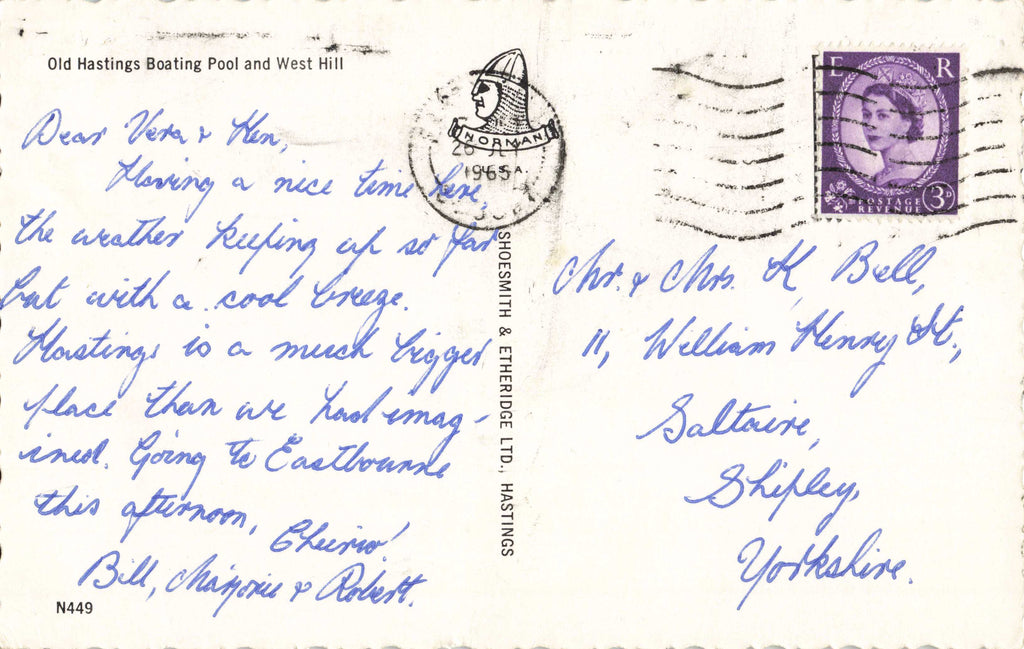 Old Hastings Boating Pool and West Hill
Dear Vera & Ken,
Having a nice time here,
the weather keeping up so far
but with a cool breeze.
Hastings is a much bigger
place than we had imag-
ined. Going to Eastbourne
this afternoon,
Cheerio!
Bill, Marjorie & Robert.
N449
SHOESMITH & ETHERIDGE LTD., HASTINGS
NORMAN
1965
E R
POSTAGE
REVENUE
3D
Mr. & Mrs. K. Bell,
11, William Henry St.,
Saltaire,
Shipley,
Yorkshire.